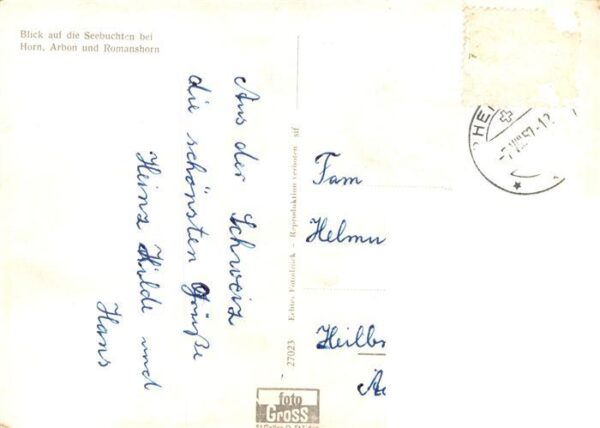 Blick auf die Seebuchten bei
Horn, Arbon und Romanshorn
Aus der Schweiz
die schönsten Grüße
Heinz Hilde und
Hans
27023 Echtes Fotodruck – Reproduktion verboten sif
Fam
Helmu
Heilb
foto
Gross
HE
-7.VIII.57-12